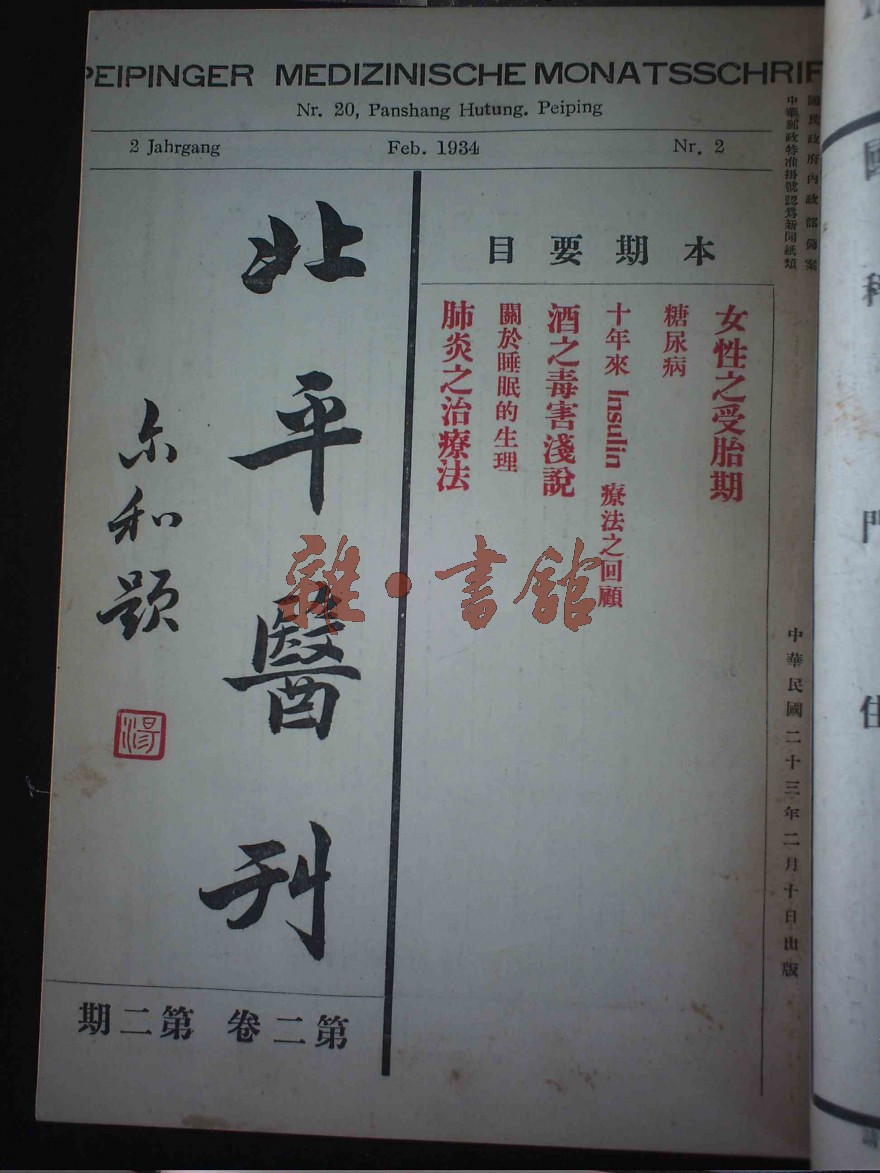 PEIPINGER MEDIZINISCHE MONATSSCHRIF
Nr. 20, Panshang Hutung. Peiping
2 Jahrgang Feb. 1934 Nr. 2
國民政府內政部備案
中華郵政特准掛號認爲新聞紙類
中華民國二十三年二月十日出版
本期要目
女性之受胎期
糖尿病
十年來 Insulin 療法之回顧
酒之毒害淺說
關於睡眠的生理
肺炎之治療法
北平醫刊
尔和題
湯
第二卷 第二期
雜·書館
國
科
門